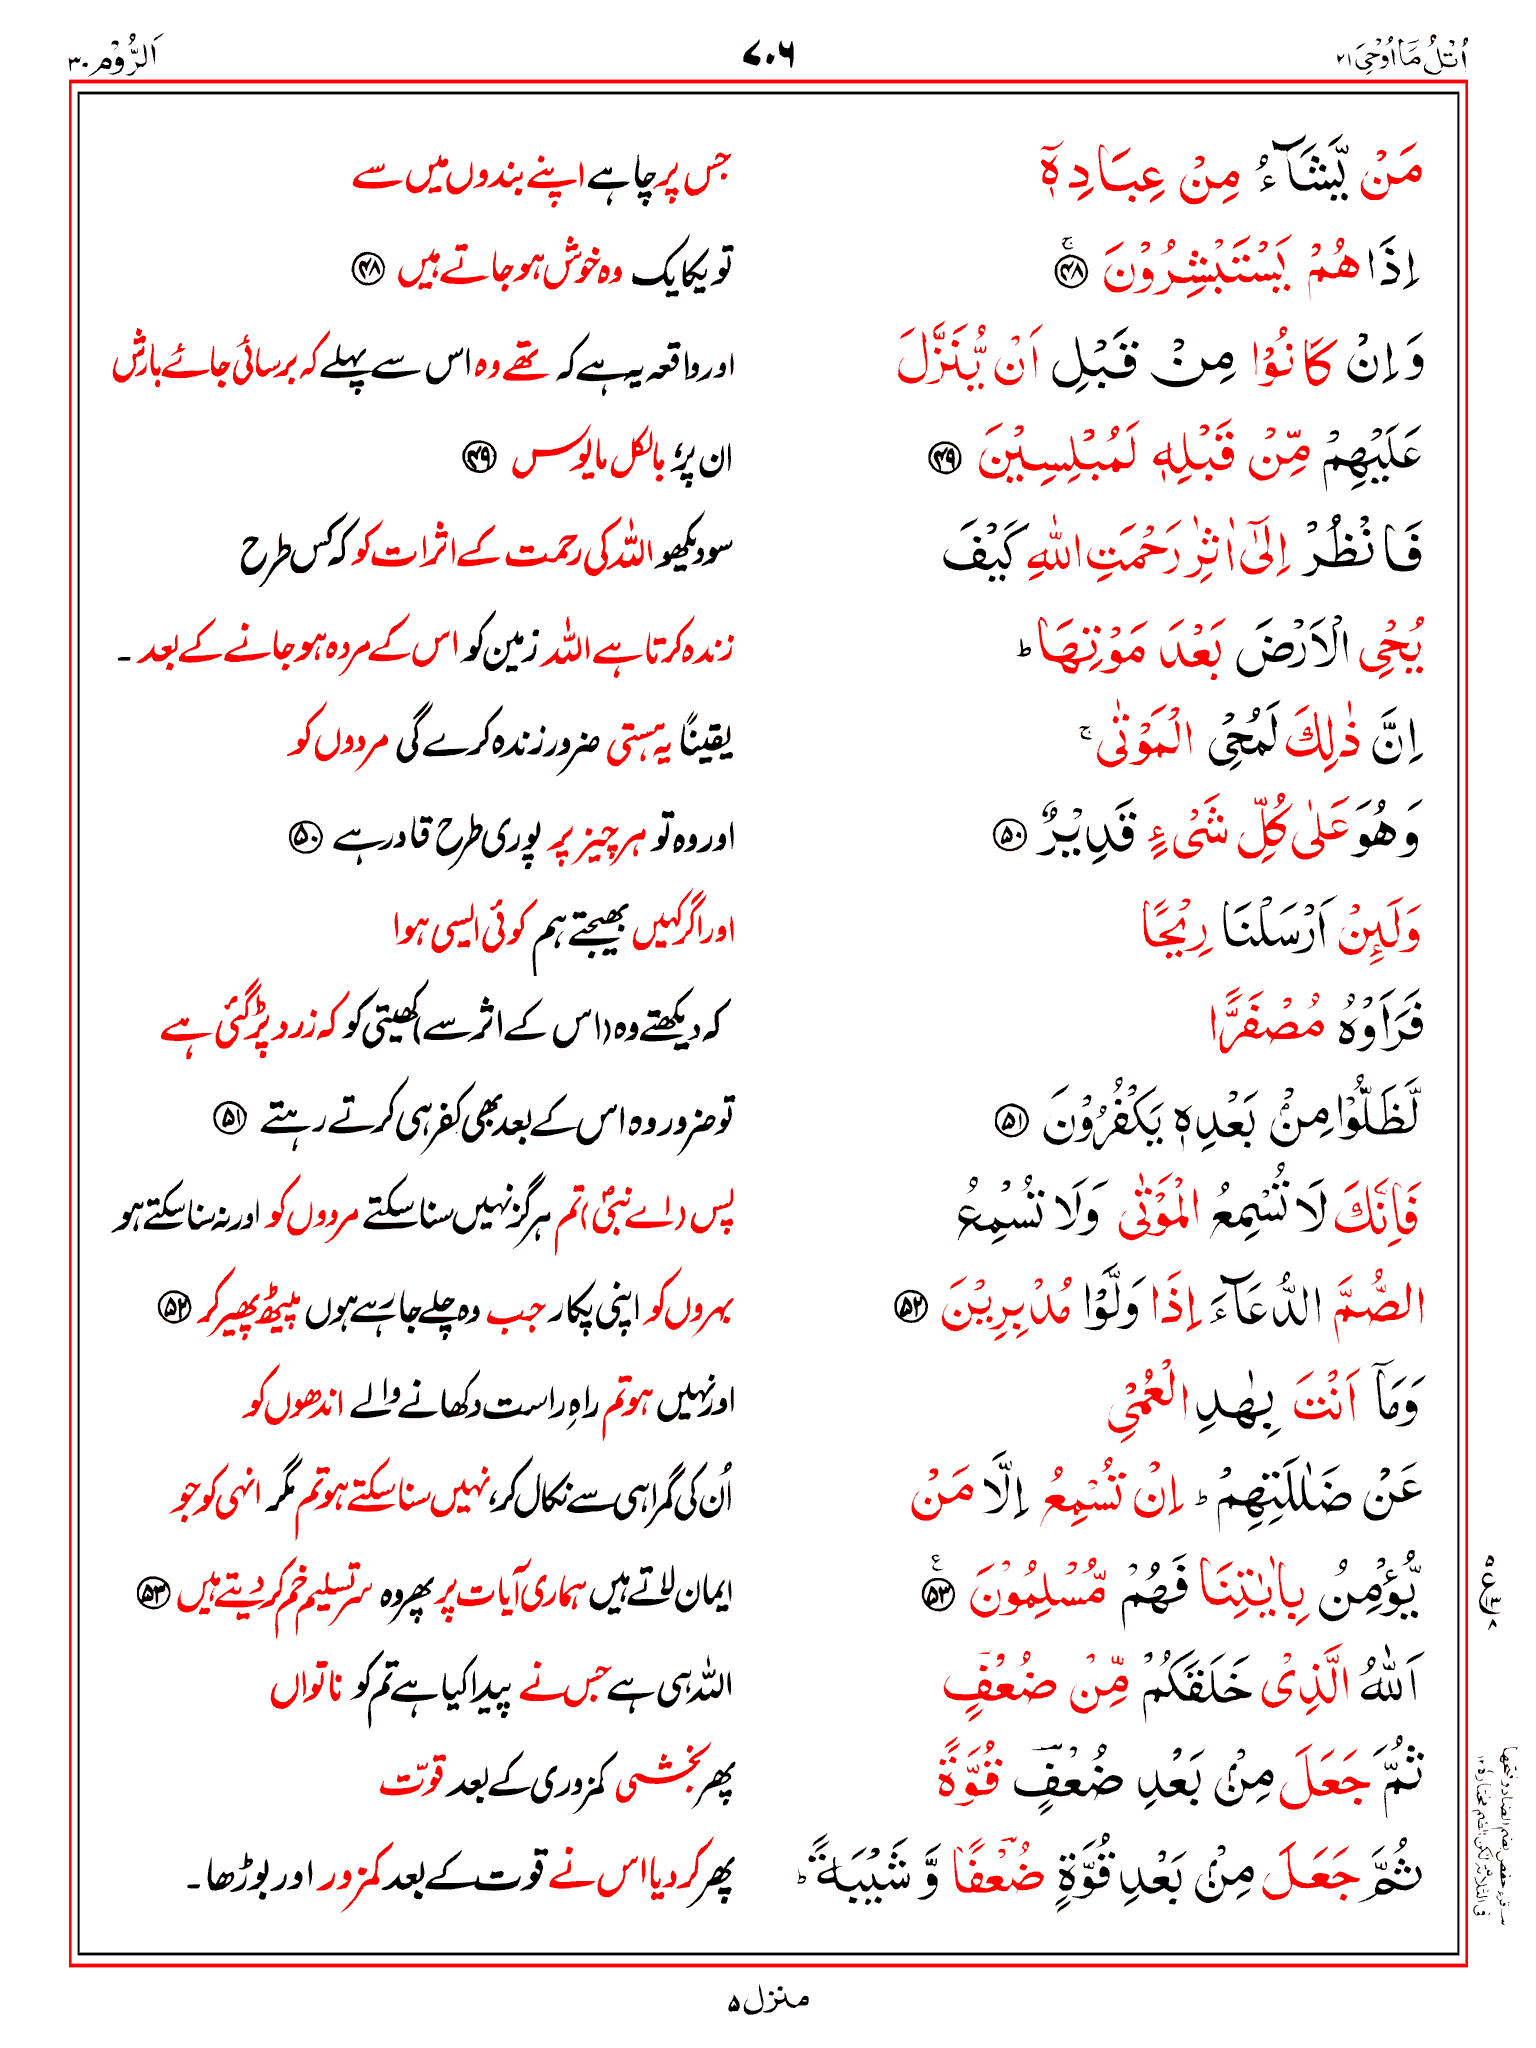 اُتْلُ مَاۤ اُوْحِیَ ۲۱
۷۰۶
اَلرُّوْم ۳۰
مَنْ یَّشَآءُ مِنْ عِبَادِهٖۤ
جس پر چاہے اپنے بندوں میں سے
اِذَا هُمْ یَسْتَبْشِرُوْنَ ۚ ﴿۴۸﴾
تو یکایک وہ خوش ہو جاتے ہیں ﴿۴۸﴾
وَ اِنْ كَانُوْا مِنْ قَبْلِ اَنْ یُّنَزَّلَ
اور واقعہ یہ ہے کہ تھے وہ اس سے پہلے کہ برسائی جائے بارش
عَلَیْهِمْ مِّنْ قَبْلِهٖ لَمُبْلِسِیْنَ ﴿۴۹﴾
ان پر، بالکل مایوس ﴿۴۹﴾
فَانْظُرْ اِلٰۤى اٰثٰرِ رَحْمَتِ اللّٰهِ كَیْفَ
سو دیکھو اللہ کی رحمت کے اثرات کو کہ کس طرح
یُحْیِ الْاَرْضَ بَعْدَ مَوْتِهَا ؕ
زندہ کرتا ہے اللہ زمین کو اس کے مردہ ہو جانے کے بعد ۔
اِنَّ ذٰلِكَ لَمُحْیِ الْمَوْتٰى ۚ
یقیناً یہ ہستی ضرور زندہ کرے گی مردوں کو
وَ هُوَ عَلٰى كُلِّ شَیْءٍ قَدِیْرٌ ﴿۵۰﴾
اور وہ تو ہر چیز پر پوری طرح قادر ہے ﴿۵۰﴾
وَ لَىِٕنْ اَرْسَلْنَا رِیْحًا
اور اگر کہیں بھیجتے ہم کوئی ایسی ہوا
فَرَاَوْهُ مُصْفَرًّا
کہ دیکھتے وہ (اس کے اثر سے) کھیتی کو کہ زرد پڑ گئی ہے
لَّظَلُّوْا مِنْۢ بَعْدِهٖ یَكْفُرُوْنَ ﴿۵۱﴾
تو ضرور وہ اس کے بعد بھی کفر ہی کرتے رہتے ﴿۵۱﴾
فَاِنَّكَ لَا تُسْمِعُ الْمَوْتٰى وَ لَا تُسْمِعُ
پس (اے نبیؐ) تم ہرگز نہیں سنا سکتے مردوں کو اور نہ سنا سکتے ہو
الصُّمَّ الدُّعَآءَ اِذَا وَلَّوْا مُدْبِرِیْنَ ﴿۵۲﴾
بہروں کو اپنی پکار جب وہ چلے جا رہے ہوں پیٹھ پھیر کر ﴿۵۲﴾
وَ مَاۤ اَنْتَ بِهٰدِ الْعُمْیِ
اور نہیں ہو تم راہِ راست دکھانے والے اندھوں کو
عَنْ ضَلٰلَتِهِمْ ؕ اِنْ تُسْمِعُ اِلَّا مَنْ
اُن کی گمراہی سے نکال کر، نہیں سنا سکتے ہو تم مگر انہی کو جو
یُّؤْمِنُ بِاٰیٰتِنَا فَهُمْ مُّسْلِمُوْنَ ﴿۵۳﴾
ایمان لاتے ہیں ہماری آیات پر پھر وہ سر تسلیم خم کر دیتے ہیں ﴿۵۳﴾
اَللّٰهُ الَّذِیْ خَلَقَكُمْ مِّنْ ضُعْفٍ
اللہ ہی ہے جس نے پیدا کیا ہے تم کو ناتواں
ثُمَّ جَعَلَ مِنْۢ بَعْدِ ضُعْفٍ قُوَّةً
پھر بخشی کمزوری کے بعد قوّت
ثُمَّ جَعَلَ مِنْۢ بَعْدِ قُوَّةٍ ضُعْفًا وَّ شَیْبَةً ؕ
پھر کر دیا اس نے قوت کے بعد کمزور اور بوڑھا ۔
منزل ۵